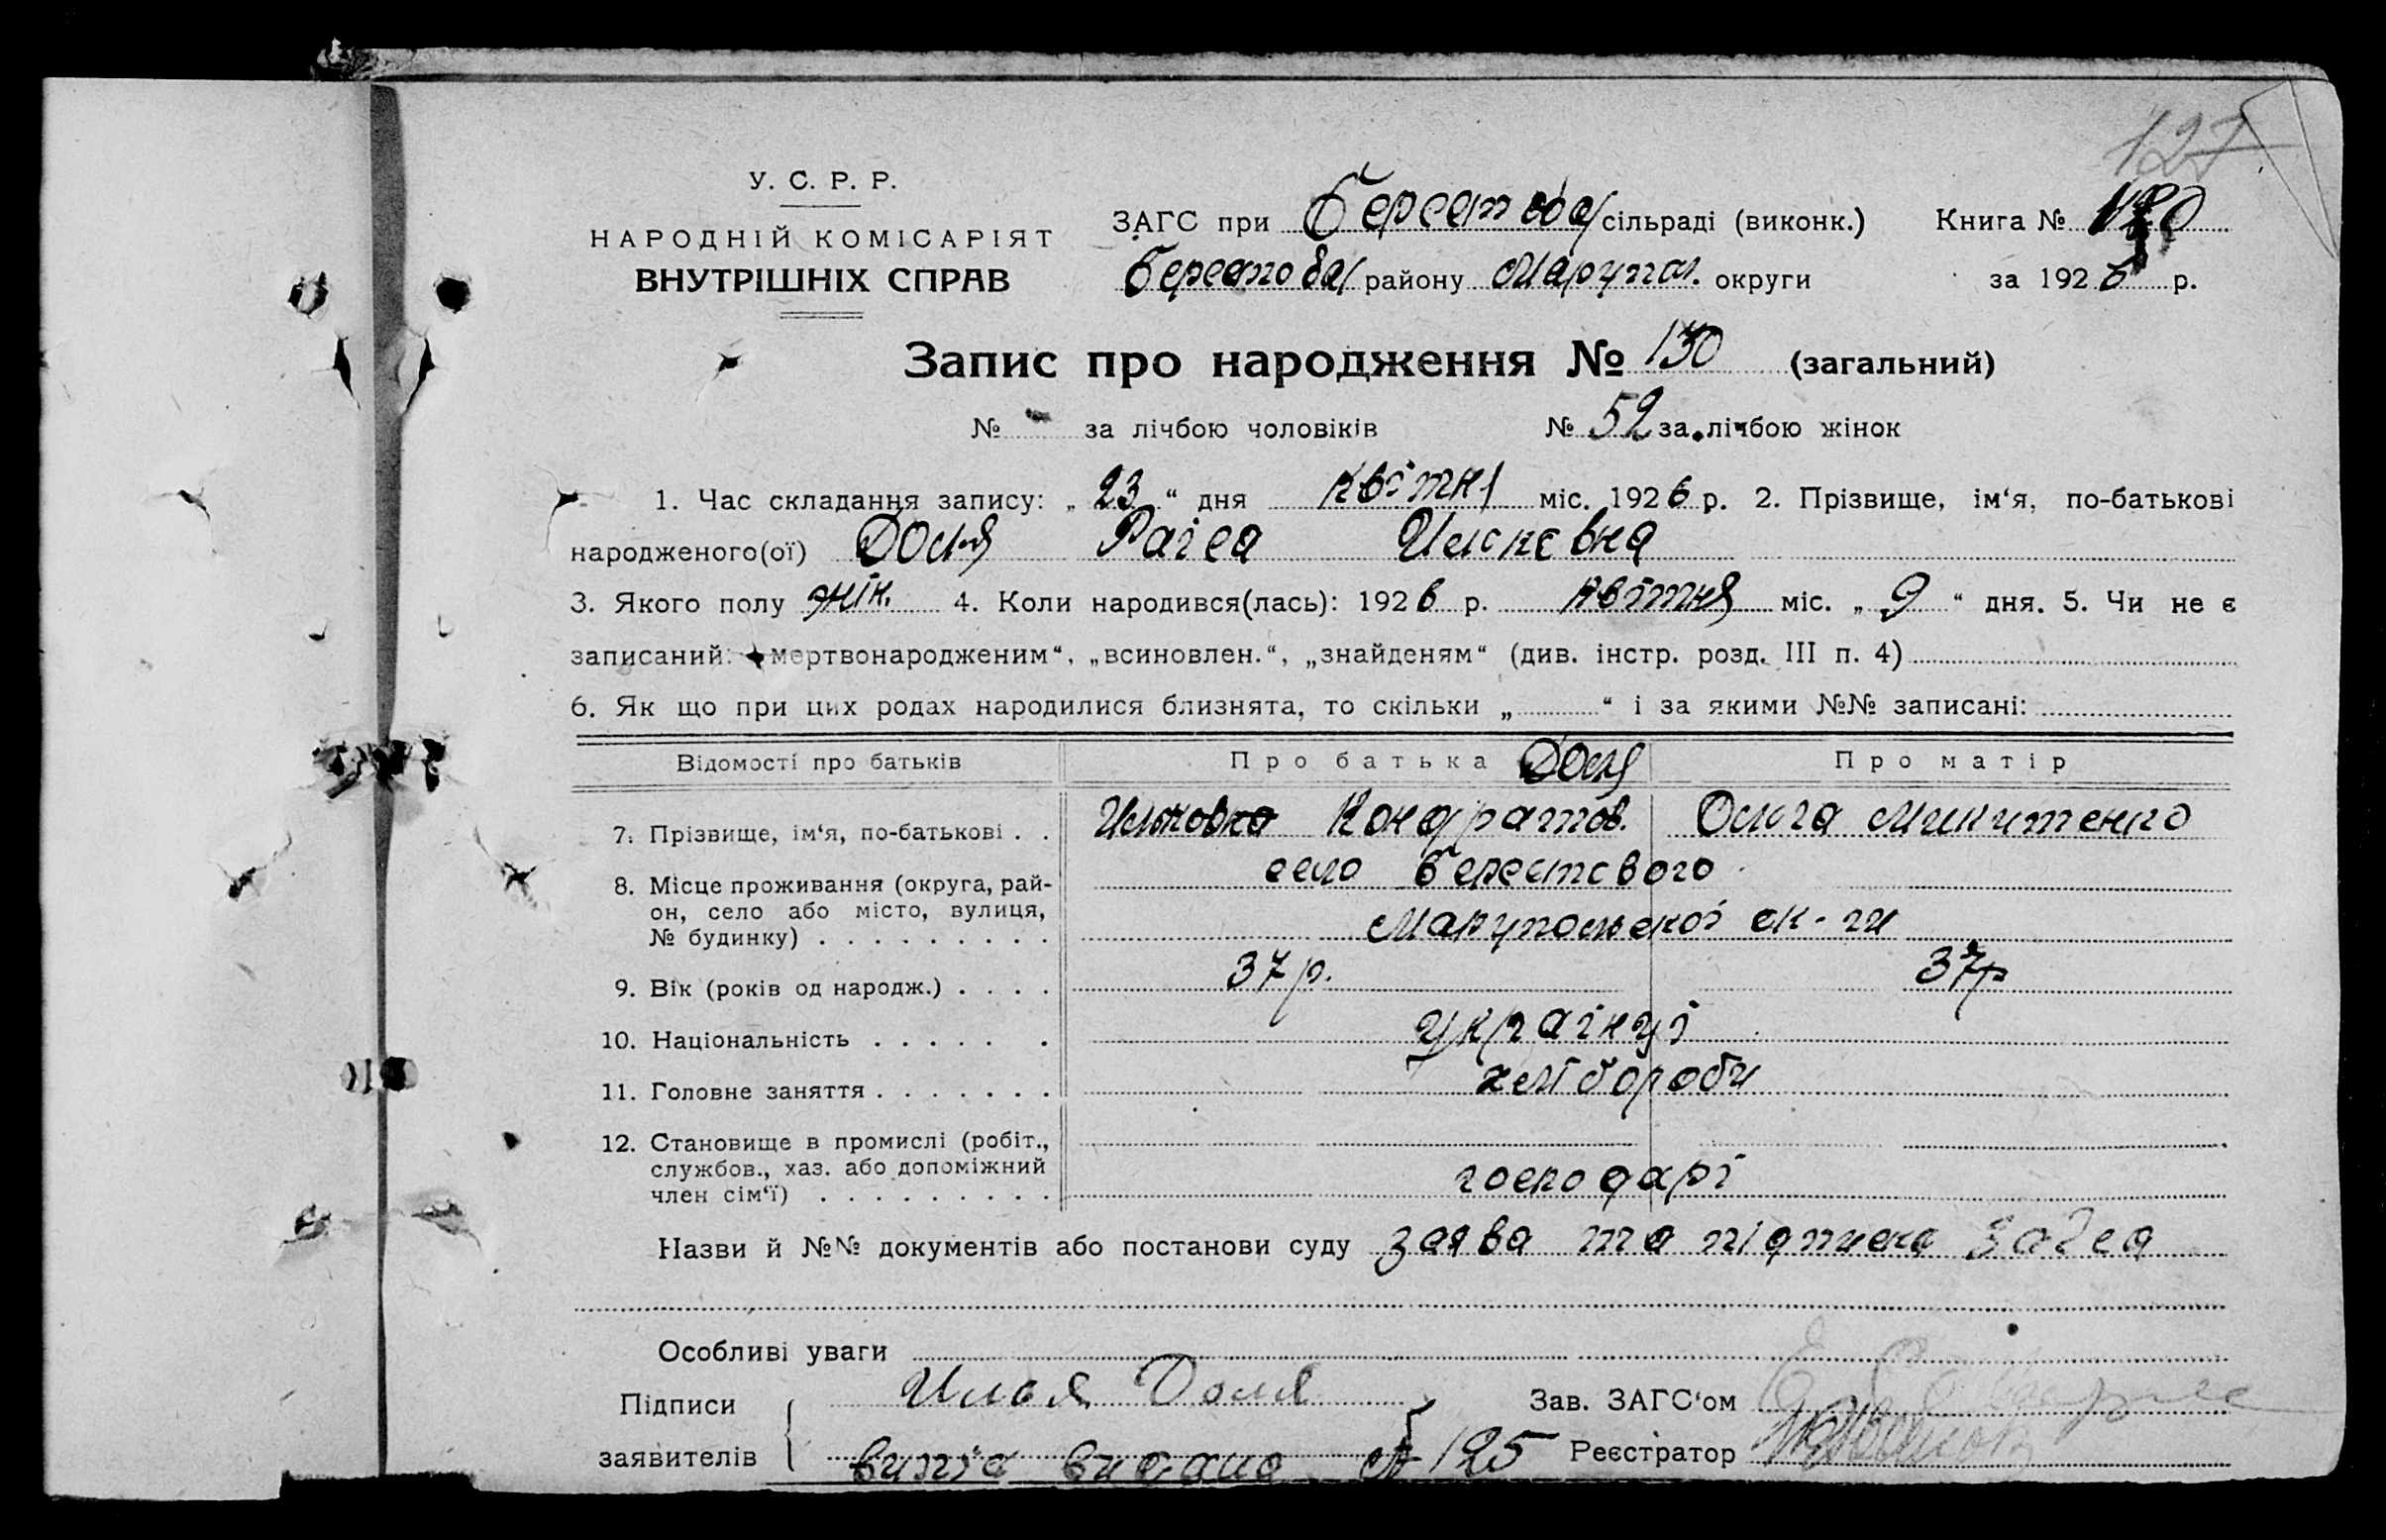 127
У. С. Р. Р.
НАРОДНІЙ КОМІСАРІЯТ
ВНУТРІШНІХ СПРАВ
ЗАГС при Берестова/ сільраді (виконк.) Книга №
Берестова/ району Маріупол. округи за 1926 р.
Запис про народження № 130 (загальний)
№ за лічбою чоловіків № 52 за лічбою жінок
1. Час складання запису: „ 23 “ дня квітня міс. 1926 р. 2. Прізвище, ім‘я, по-батькові
народженого(ої) Доля Раіса
3. Якого полу жін. 4. Коли народився(лась): 1926 р. квітня міс. „ 9 “ дня. 5. Чи не є
записаний: „мертвонародженим“, „всиновлен.“, „знайденям“ (див. інстр. розд. III п. 4)
6. Як що при цих родах народилися близнята, то скільки „ “ і за якими №№ записані:
Відомості про батьків Про батька Доля Про матір
7. Прізвище, ім‘я, по-батькові . . Кондратов. Ольга Микитенко
8. Місце проживання (округа, рай-
он, село або місто, вулиця,
№ будинку) . . . . . . . . .
село Берестового
Марупольскої ок-ги
9. Вік (років од народж.) . . . . 37 р. 37р
10. Національність . . . . . . українці
11. Головне заняття . . . . . . . хлібороби
12. Становище в промислі (робіт.,
службов., хаз. або допоміжний
член сім‘ї) . . . . . . . . .
господарі
Назви й №№ документів або постанови суду заява та підписка загса
Особливі уваги
Підписи
заявителів
Илья Доля
Зав. ЗАГС‘ом
випис видано № 125 Реєстратор